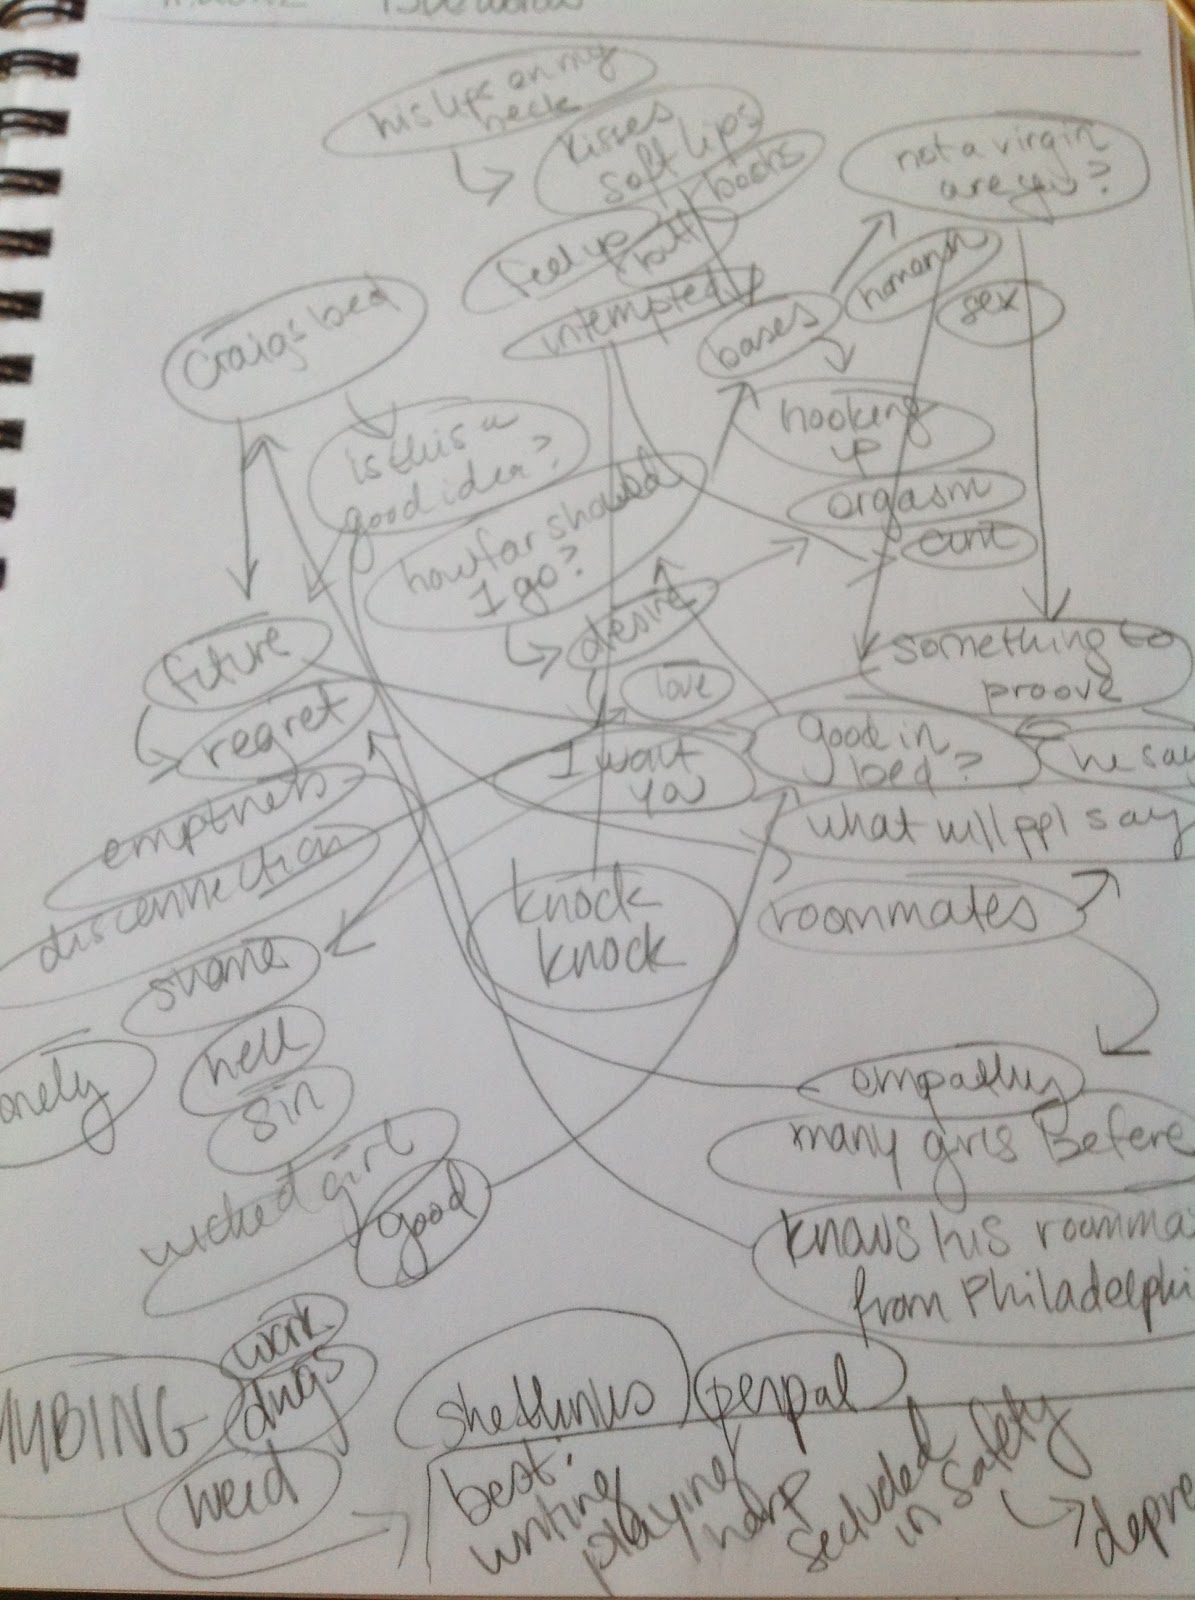 his lips on my
neck
kisses
soft lips
boobs
not a virgin
are you?
feel up
butt
Craigs bed
bases
sex
is this a
good idea?
hooking
up
orgasm
how far should
I go?
desire
future
something to
proove
love
regret
I want
you
good in
bed?
he say
emptness
what will ppl say
disconnection
knock
knock
roommates
shame
hell
onely
sin
empathy
many girls Before
wicked girl
good
knows his roomma
from Philadelphi
work
drugs
MBING
weed
she thinks
penpal
best:
writing
playing
harp
secluded
in safety
depre